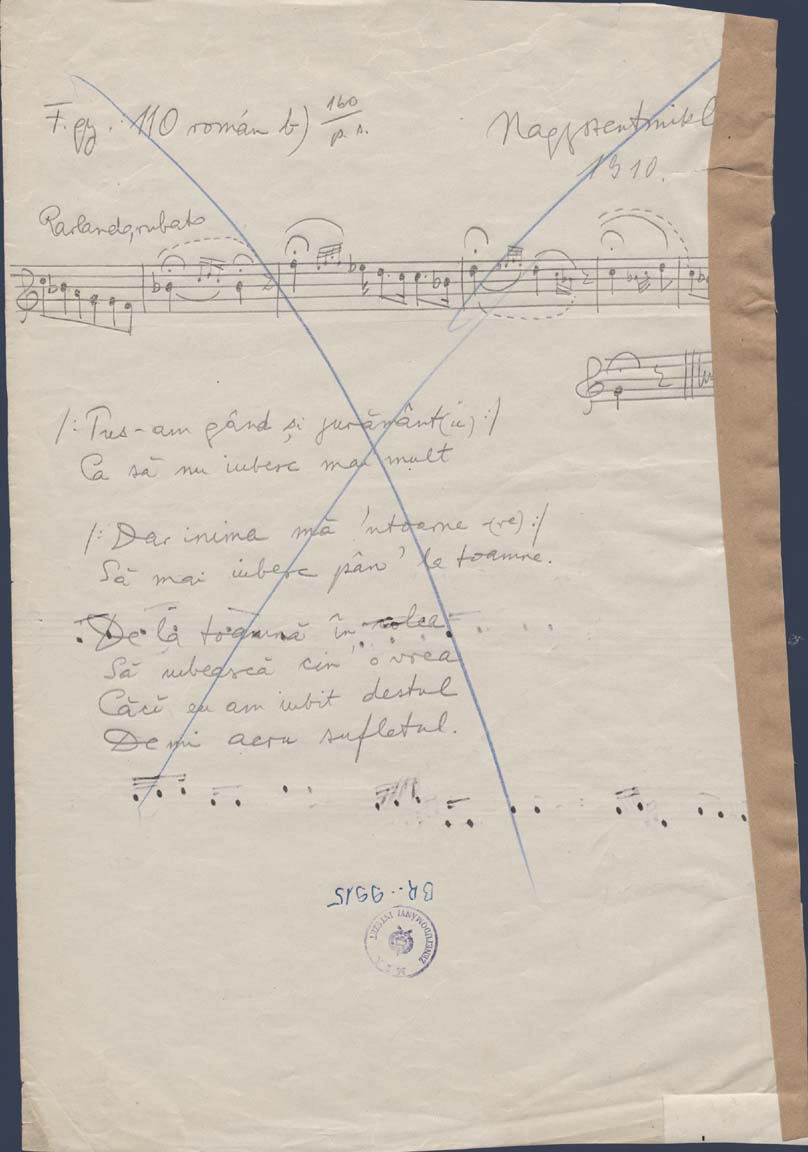 F. gy. : 110 román b) 160/p. s.
Nagyszentmikl
1910.
Parlando, rubato
/: Pus-am gând și jurământ(ŭ) :/
Ca să nu iubesc mai mult
/: Dar inima mă 'ntoarne -(re) :/
Să mai iubesc pân' la toamne.
De la toamnă în colea
Să iubească cin' o vrea
Căci eu am iubit destul
De mi acru sufletul.
BR. 9915
M. T. A. ZENETUDOMÁNYI INTÉZET